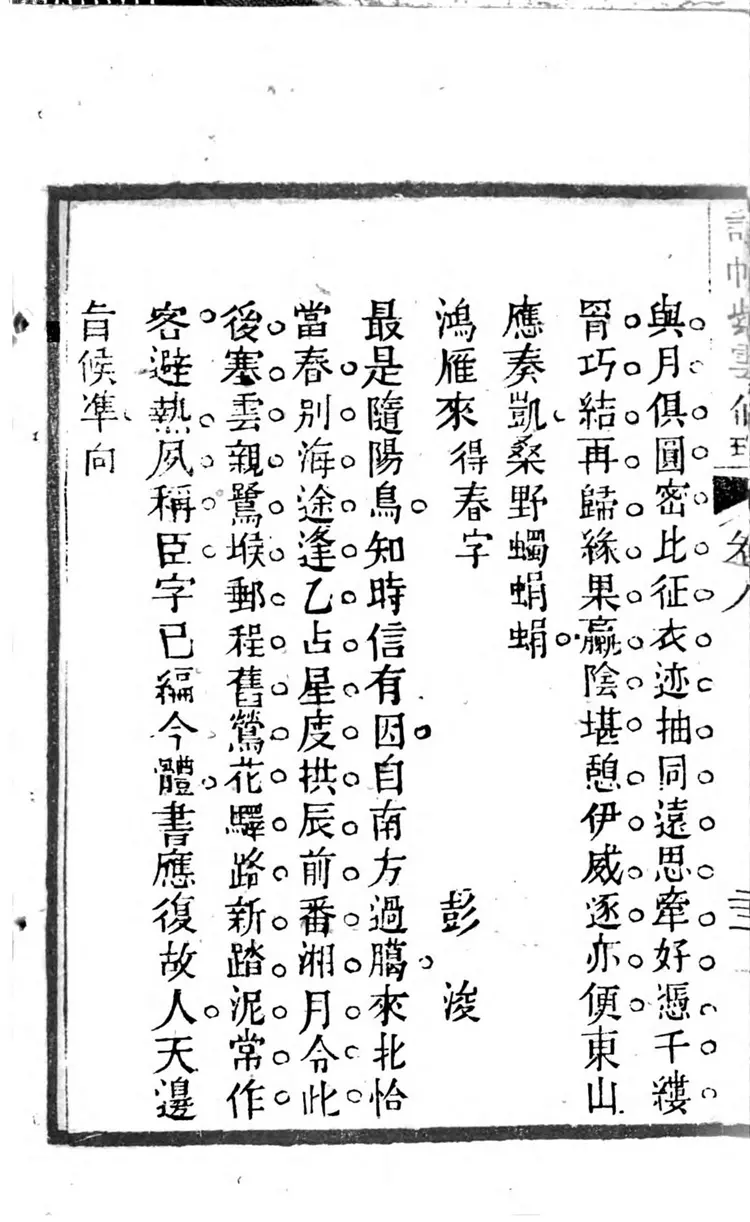 與月俱圓密比征衣迹抽同遠思牽好憑千縷
罥巧結再歸緣果蠃陰堪憩伊威逐亦便東山
應奏凱桑野蠋蜎蜎
鴻雁來得春字 彭浚
最是隨陽鳥知時信有因自南方過臈來北恰
當春別海途逢乙占星度拱辰前番湘月令此
後塞雲親鷺堠郵程舊鶯花驛路新踏泥常作
客避熱夙稱臣字已編今體書應復故人天邊
旨候凖向